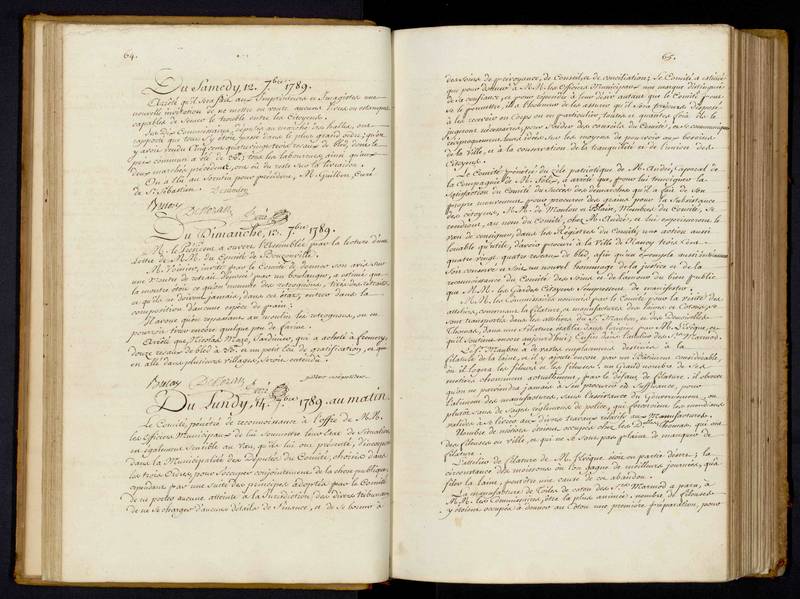 64.
Du Samedy, 12. 7bre 1789.
Arrêté qu'il sera fait aux Imprimeurs et Imagistes une
nouvelle invitation de ne mettre en vente aucuns livres ou estampes
capables de semer le trouble entre les Citoyens.
Les Commissaires, députés au marché des halles, ont
rapporté que tout s'y étoit passé dans le plus grand ordre; qu'on
y avoit vendu Cinq cent quatre vingt trois resaux de bled, dont le
prix commun a été de
deux marchés précédents, ont du reste sur la livraison.
On a élu au Scrutin pour président, M. Guilbert, Curé
de St. Sébastien.
Du Dimanche, 13. 7bre 1789.
M. le Président a ouvert l'Assemblée par la lecture d'une
Lettre de M.M. du Comité de Bouzonville.
M. invité par le Comité de donner son avis sur
une vente de retrait denoncé par un boulanger, a estimé que
la montre étoit ce qu'on nomme des retrognons, tirés des retraits
et qu'ils ne doivent jamais, dans cet état, entrer dans la
composition d'aucune espèce de pain;
Il avoue qu'en repassant au moulin les retrognons, on en
pouvoit tirer encore quelque peu de farine.
Arrêté que Nicolas Maze, Jardinier, qui a acheté à
douze resaux de bled à et un petit écu de gratification, et qui
en alle dans plusieurs villages, seroit entendu.
Du Lundy, 14. 7bre 1789. au matin
Le Comité, pénétré de reconnoissance à l'offre de M.M.
les Officiers Municipaux de lui soumettre leur Etat de Situation
et également sensible au vœu, qu'ils lui ont présenté, d'incorporer
dans la Municipalité des Députés du Comité, choisis dans
les trois Ordres, pour s'occuper conjointement de la chose publique,
cependant par une suite des principes adoptés par le Comité
de ne porter aucune atteinte à la Jurisdiction des divers tribunaux
de ne se charger d'aucuns détails de Finance, et de se borner à
65.
des soins de prévoyance, de Conseil et de conciliation; le Comité a estimé
que pour donner à M.M. les Officiers Municipaux une marque distinguée
de sa confiance, et pour répondre à leur désir autant que le Comité peut
se le permettre, il a l'honneur de les assurer qu'il sera toujours disposé
à les recevoir en Corps ou en particulier, toutes et quantes fois ils le
jugeront nécessaire, pour s'aider des travaux du Comité, et se communiquer
réciproquement leurs idées sur les moyens de pourvoir aux besoins
de la Ville, et à la conservation de la tranquilité et de l'union des
Citoyens.
Le Comité pénétré du zèle patriotique de M. André, Caporal de
la Compagnie de M. a arrêté que, pour lui témoigner la
satisfaction du Comité du succès des démarches qu'il a fait de son
propre mouvement pour procurer des grains pour la subsistance
des citoyens, M.M. de Manlou et Blaise, Membres du Comité, se
rendront, au nom du Comité, chez M. André, et lui exprimeront le
vœu de consigner, dans les Régistres du Comité, une action aussi
louable qu'utile, d'avoir procuré à la Ville de Nancy trois cent
quatre vingt quatre resaux de bled, afin qu'un exemple aussi
soit conservé et soit un nouvel hommage de la justice et de la
reconnoissance du Comité des soins et de l'amour du bien public
que M.M. les Gardes Citoyens s'empressent de manifester.
M.M. les Commissaires nommés par le Comité pour la visite des
atteliers, concernant la filature, et manufacture des laines et Cotons, se
sont transportés dans les atteliers du Sr. Manlou, et des Demoiselles
Thomas, dans une filature établie dans
qu'il soutient encore aujourd'hui; Enfin dans l'attelier des Srs. Marmod.
Le Sr. Manlou a de vastes emplacements destinés à la
filature de la laine, et il y ajoute encore par un bâtiment considérable,
où il logera les fileurs et les fileuses; un Grand nombre de ses
métiers chomment actuellement, par le défaut de filature, il observe
qu'on ne parviendra jamais à s'en procurer en suffisance, pour
l'aliment des manufactures, sans l'assistance du Gouvernement, ou
plutôt sans de sages réglemens de police, qui forceroient les mendians
valides à se livrer aux divers travaux relatifs aux Manufactures.
Nombre de métiers étoient occupés chez les Dlles. Thomas qui ont
des fileuses en ville, et qui ne se sont pas plaint de manquer de
filature.
L'attelier de filature de M. étoit en partie désert; la
circonstance des moissons où l'on gagne de meilleures journées, qu'à
filer la laine, peut être une cause de cet abandon.
La manufacture de Toiles de coton des Srs. Marmod a paru, à
M.M. les Commissaires, être la plus animée, nombre de fileuses
y étoient occupées à donner au Coton une première préparation, pour